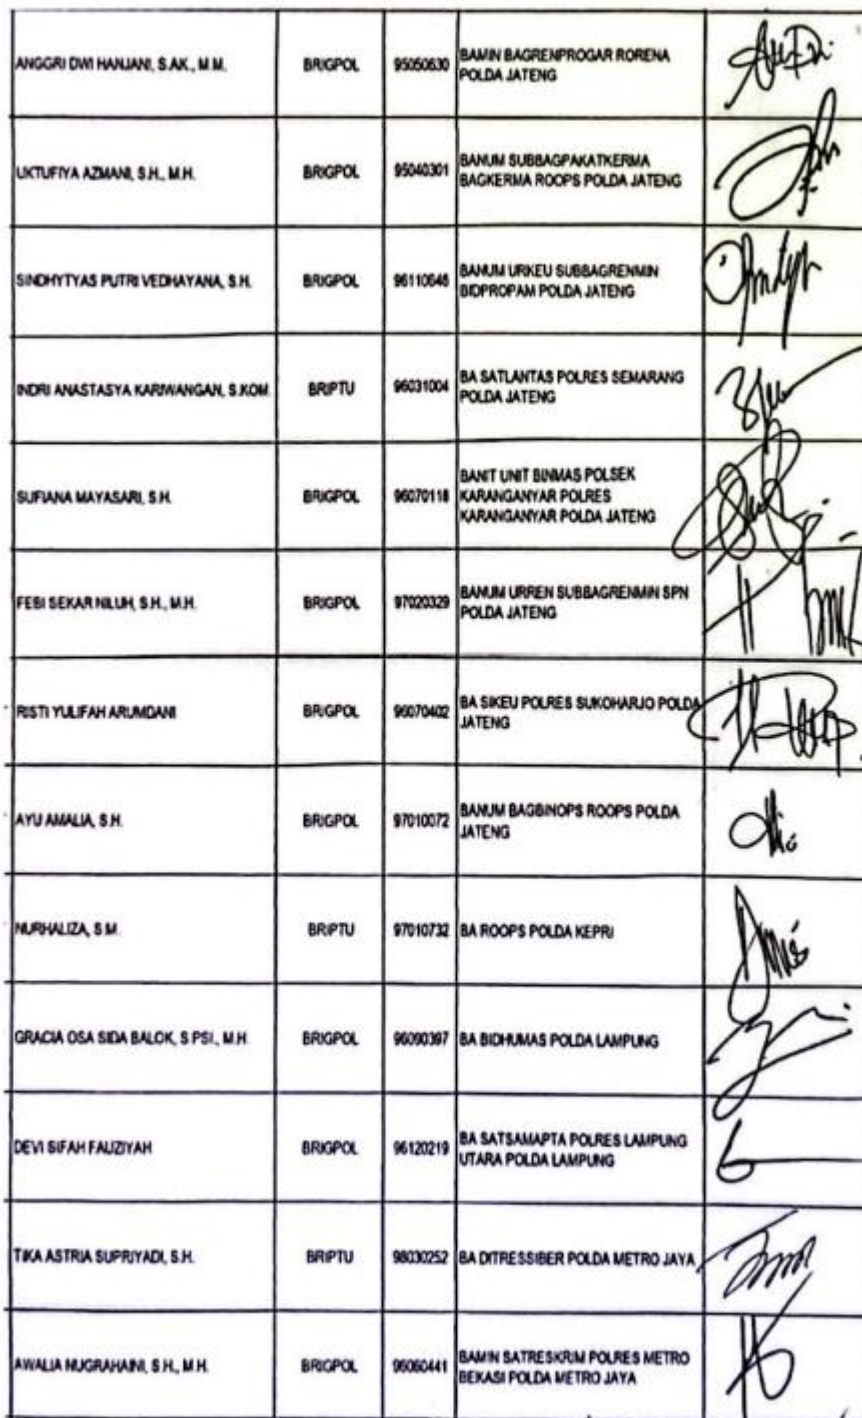 ANGGRI DWI HANJANI, S.AK., M.M. BRIGPOL 95050630 BAMIN BAGRENPROGAR RORENA
POLDA JATENG
UKTUFIYA AZMANI, S.H., M.H. BRIGPOL 95040301 BANUM SUBBAGPAKATKERMA
BAGKERMA ROOPS POLDA JATENG
SINDHYTYAS PUTRI VEDHAYANA, S.H. BRIGPOL 96110646 BANUM URKEU SUBBAGRENMIN
BIDPROPAM POLDA JATENG
INDRI ANASTASYA KARIWANGAN, S.KOM BRIPTU 96031004 BA SATLANTAS POLRES SEMARANG
POLDA JATENG
SUFIANA MAYASARI, S.H. BRIGPOL 96070118 BANIT UNIT BINMAS POLSEK
KARANGANYAR POLRES
KARANGANYAR POLDA JATENG
FEBI SEKAR NILUH, S.H., M.H. BRIGPOL 97020329 BANUM URREN SUBBAGRENMIN SPN
POLDA JATENG
RISTI YULIFAH ARUMDANI BRIGPOL 96070402 BA SIKEU POLRES SUKOHARJO POLDA
JATENG
AYU AMALIA, S.H. BRIGPOL 97010072 BANUM BAGBINOPS ROOPS POLDA
JATENG
NURHALIZA, S.M. BRIPTU 97010732 BA ROOPS POLDA KEPRI
GRACIA OSA SIDA BALOK, S.PSI., M.H. BRIGPOL 96090397 BA BIDHUMAS POLDA LAMPUNG
DEVI SIFAH FAUZIYAH BRIGPOL 96120219 BA SATSAMAPTA POLRES LAMPUNG
UTARA POLDA LAMPUNG
TIKA ASTRIA SUPRIYADI, S.H. BRIPTU 98030252 BA DITRESSIBER POLDA METRO JAYA
AWALIA NUGRAHAINI, S.H., M.H. BRIGPOL 96060441 BAMIN SATRESKRIM POLRES METRO
BEKASI POLDA METRO JAYA